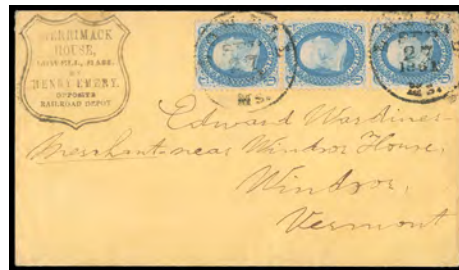 MERRIMACK
HOUSE,
LOWELL, MASS.
BY
HENRY EMERY.
OPPOSITE
RAILROAD DEPOT
27
1861
Edward Wardiner
Merchant near Windsor House,
Windsor,
Vermont